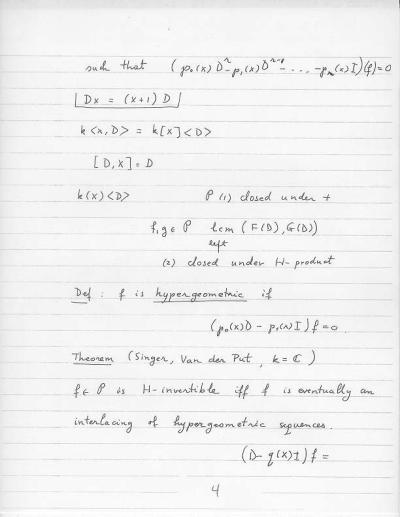 such that (p₀(x) Dⁿ - p₁(x) Dⁿ⁻¹ - ... - pₙ(x) I)(f) = 0
Dx = (x+1) D
k<x, D> = k[x]<D>
[D, x] = D
k(x)<D> P (1) closed under +
f, g ∈ P lcm (F(D), G(D))
left
(2) closed under H-product
Def : f is hypergeometric if
(p₀(x)D - p₁(x)I) f = 0
Theorem (Singer, Van der Put, k = ℂ)
f ∈ P is H-invertible iff f is eventually an
interlacing of hypergeometric sequences.
(D - q(x)I) f =
4